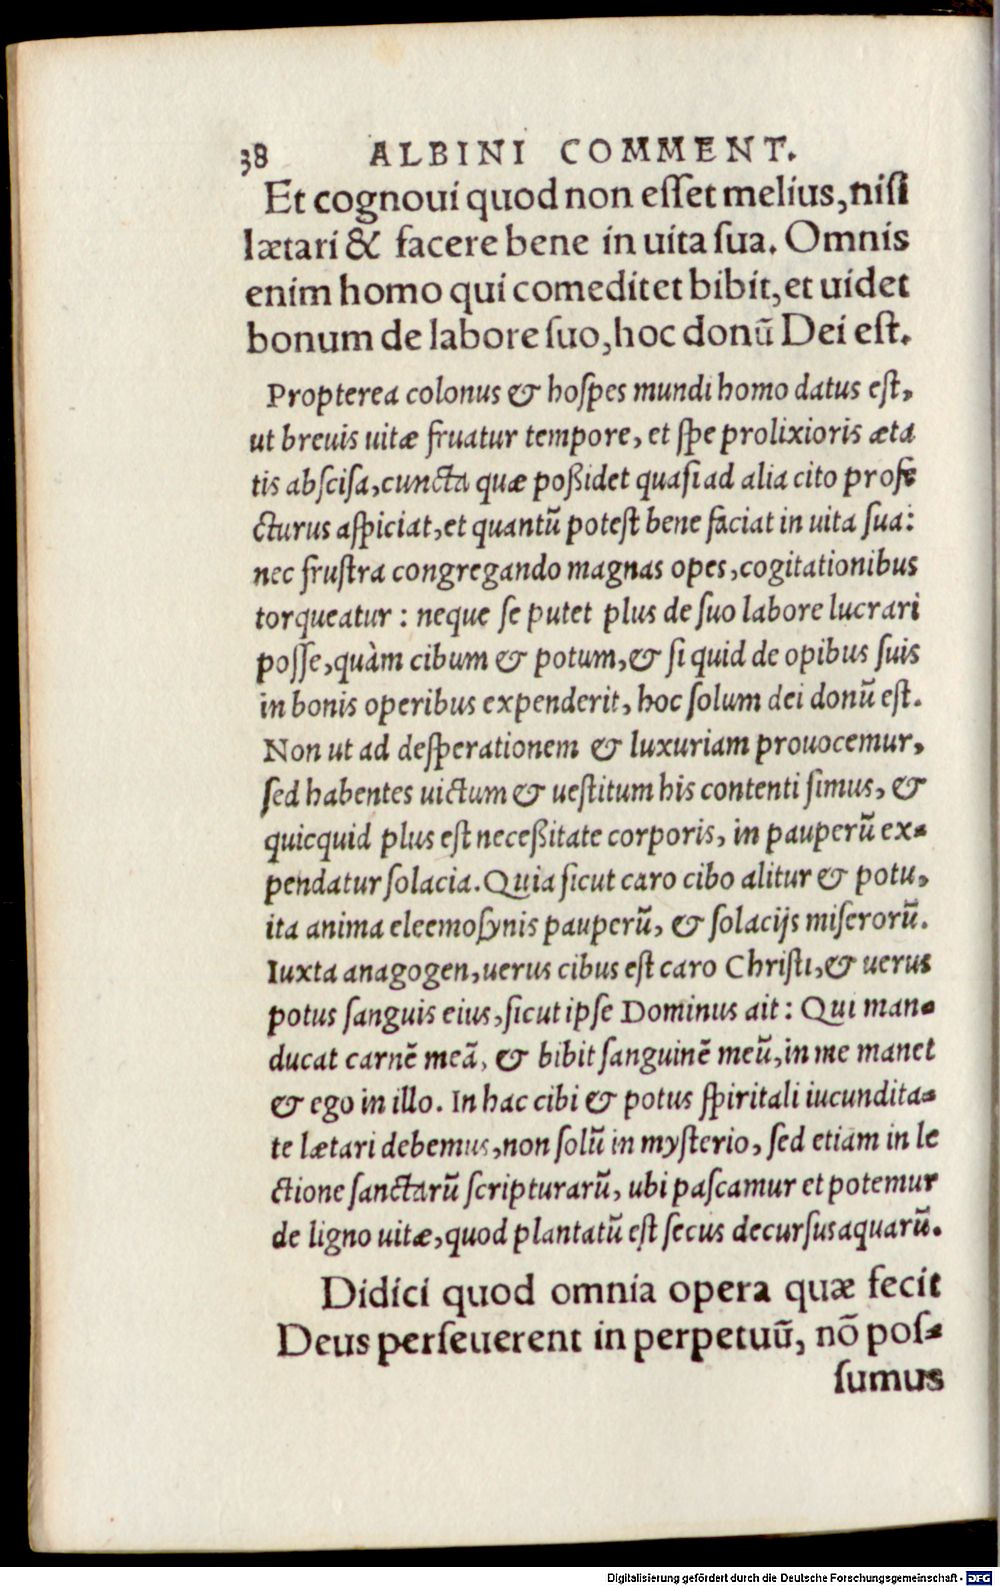 38 ALBINI COMMENT.
Et cognoui quod non esset melius, nisi
lætari & facere bene in uita sua. Omnis
enim homo qui comedit et bibit, et uidet
bonum de labore suo, hoc donū Dei est.
Propterea colonus & hospes mundi homo datus est,
ut breuis uitæ fruatur tempore, et spe prolixioris æta
tis abscisa, cuncta quæ poßidet quasi ad alia cito profe
cturus aspiciat, et quantū potest bene faciat in uita sua:
nec frustra congregando magnas opes, cogitationibus
torqueatur: neque se putet plus de suo labore lucrari
posse, quàm cibum & potum, & si quid de opibus suis
in bonis operibus expenderit, hoc solum dei donū est.
Non ut ad desperationem & luxuriam prouocemur,
sed habentes uictum & uestitum his contenti simus, &
quicquid plus est neceßitate corporis, in pauperū ex-
pendatur solacia. Quia sicut caro cibo alitur & potu,
ita anima eleemosynis pauperū, & solacijs miserorū.
Iuxta anagogen, uerus cibus est caro Christi, & uerus
potus sanguis eius, sicut ipse Dominus ait: Qui man-
ducat carnē meā, & bibit sanguinē meū, in me manet
& ego in illo. In hac cibi & potus spiritali iucundita-
te lætari debemus, non solū in mysterio, sed etiam in le
ctione sanctarū scripturarū, ubi pascamur et potemur
de ligno uitæ, quod plantatū est secus decursus aquarū.
Didici quod omnia opera quæ fecit
Deus perseuerent in perpetuū, nō pos-
sumus
Digitalisierung gefördert durch die Deutsche Forschungsgemeinschaft - DFG